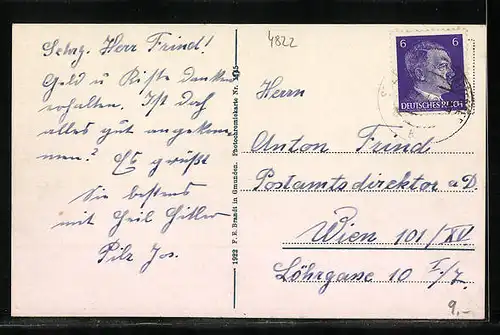 4822
Sehrg. Herr Frind!
Geld u Kiste dankend
erhalten. Ist doch
alles gut angekom-
men? Es grüßt
Sie bestens
mit Heil Hitler
Pilz Jos.
1922 F. E. Brandt in Gmunden. Photochromiekarte Nr.
6 6
DEUTSCHES REICH
Herrn
Anton Frind
Postamtsdirektor a D.
Wien 101/XV
Löhrgasse 10 I/7
9,-